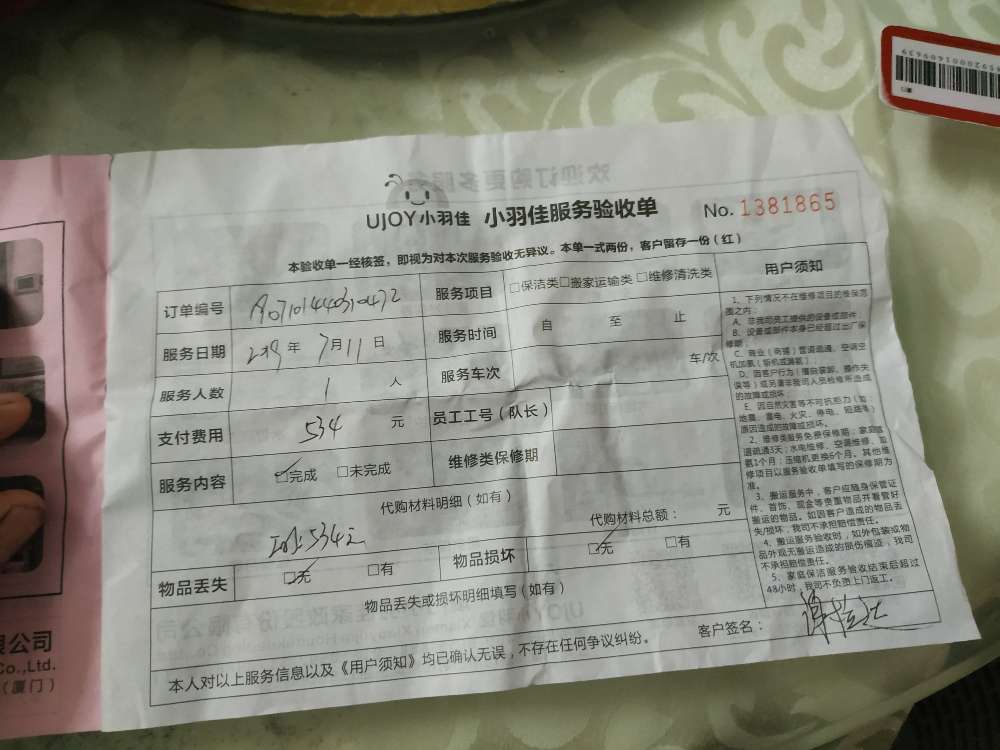 UJOY小羽佳 小羽佳服务验收单 No. 1381865
本验收单一经核签，即视为对本次服务验收无异议。本单一式两份，客户留存一份（红）
订单编号
服务项目 □保洁类□搬家运输类 □维修清洗类
服务日期 2019 年 7 月 11 日
服务时间 自 至 止
服务人数 1 人
服务车次 车/次
支付费用 534 元
员工工号（队长）
服务内容 ☑完成 □未完成
维修类保修期
代购材料明细（如有）
534元
代购材料总额： 元
物品丢失 ☑无 □有
物品损坏 ☑无 □有
物品丢失或损坏明细填写（如有）
本人对以上服务信息以及《用户须知》均已确认无误，不存在任何争议纠纷。
客户签名：
用户须知
1、下列情况不在维修项目的维保范
围之内：
A、非我司员工提供的设备或部件；
B、设备或部件本身已经超过出厂保
修期；
C、商业（商铺）管道疏通、空调空
机加氨（拆机或漏氨）；
D、因客户行为（擅自装卸、操作失
误等）或另请非我司人员检修所造成
的故障或损坏；
E、因自然灾害等不可抗拒力（如：
地震、雷电、火灾、停电、短路等）
原因造成的故障或损坏。
2、维修类服务免费保修期：家庭管
道疏通3天；水电维修、空调维修、加
氨1个月；压缩机更换6个月。其他维
修项目以服务验收单填写的保修期为
准。
3、搬运服务中，客户应随身保管证
件、首饰、现金等贵重物品并看管好
搬运的物品。如因客户造成的物品丢
失/损坏，我司不承担赔偿责任。
4、搬运服务验收时，如外包装或物
品外观无搬运造成的损伤痕迹，我司
不承担赔偿责任。
5、家庭保洁服务验收结束后超过
48小时，我司不负责上门返工。
限公司
Co.,Ltd.
（厦门）